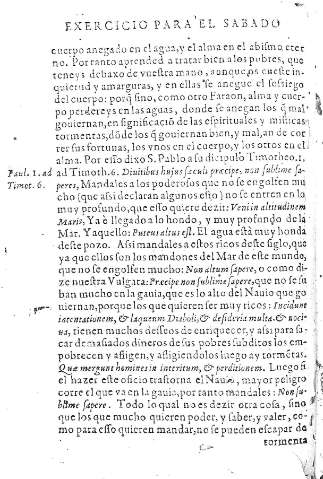 EXERCICIO PARA EL SABADO
cuerpo anegado en el agua, y el alma en el abismo eter
no. Por tanto aprended a tratar bien a los pobres, que
teneys debaxo de vuestra mano, aunque os cueste in-
quietud y amarguras, y en ellas se anegue el sossiego
del cuerpo: porq̃ sino, como otro Faraon, alma y cuer-
po perdereys en las aguas, donde se anegan los q̃ mal
gouiernan, en significaciõ de las espirituales y misticas
tormentas, dõde los q̃ gouiernan bien, y mal, an de cor
rer sus fortunas, los vnos en el cuerpo, y los otros en el
alma. Por esso dixo S. Pablo a su dicipulo Timotheo. 1.
Paul. 1. ad
Timot. 6.
ad Timoth. 6. Diuitibus hujus sæculi præcipe, non sublime sa-
peres, Mandales a los poderosos que no se engolfen mu
cho (que assi declaran algunos esto) no se entren en lo
muy profundo, que esso quiere dezir: Veni in altitudinem
Maris, Ya è llegado a lo hondo, y muy profundo de la
Mar. Y aquello: Puteus altus est. El agua està muy honda
deste pozo. Assi mandales a estos ricos deste siglo, que
ya que ellos son los mandones del Mar de este mundo,
que no se engolfen mucho: Non altum sapere, o como di
ze nuestra Vulgata: Præcipe non sublime sapere, que no se su
ban mucho en la gauia, que es lo alto del Nauio que go
uiernan, porque los que quieren ser muy ricos: Incidunt
in tentationem, & laqueum Diaboli, & desideria multa & noci-
ua, tienen muchos desseos de enriquecer, y assi para sa-
car demasiados dineros de sus pobres subditos los em-
pobrecen y afligen, y afligiendolos luego ay tormẽtas.
Quæ mergunt homines in interitum, & perditionem. Luego si
el hazer este oficio trastorna el Nauio, mayor peligro
corre el que va en la gauia, por tanto mandales: Non su-
blime sapere. Todo lo qual no es dezir otra cosa, sino
que los que mucho quieren poder, y saber, y valer, co-
mo para esso quieren mandar, no se pueden escapar de
tormenta